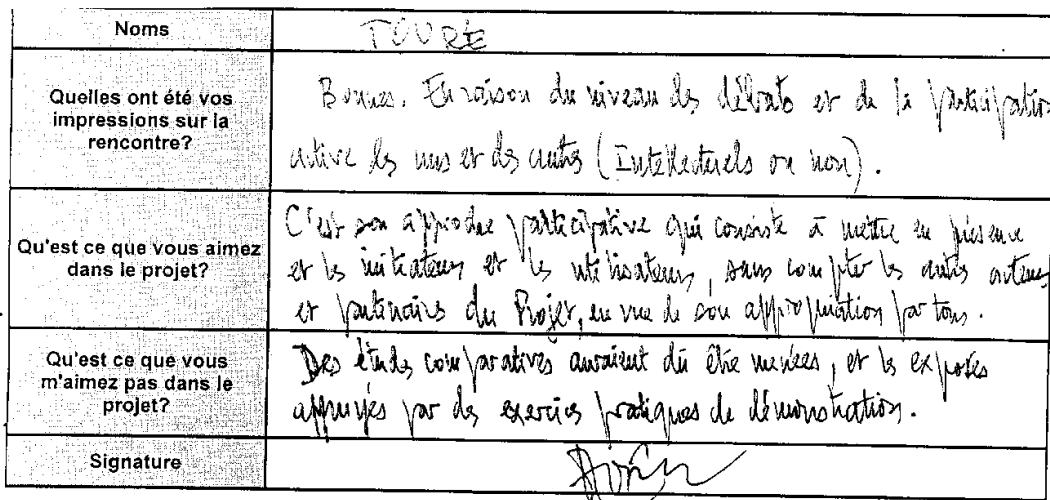 Noms
TOURE
Quelles ont été vos
impressions sur la
rencontre?
Bonnes. En raison du niveau des débats et de la participation
active des uns et des autres (Intellectuels ou non).
Qu'est ce que vous aimez
dans le projet?
C'est son approche participative qui consiste à mettre en présence
et les initiateurs et les utilisateurs, sans compter les autres acteurs
et partenaires du Projet, en vue de son appropriation par tous.
Qu'est ce que vous
m'aimez pas dans le
projet?
Des études comparatives auraient dû être menées, et les exposés
appuyés par des exercices pratiques de démonstration.
Signature